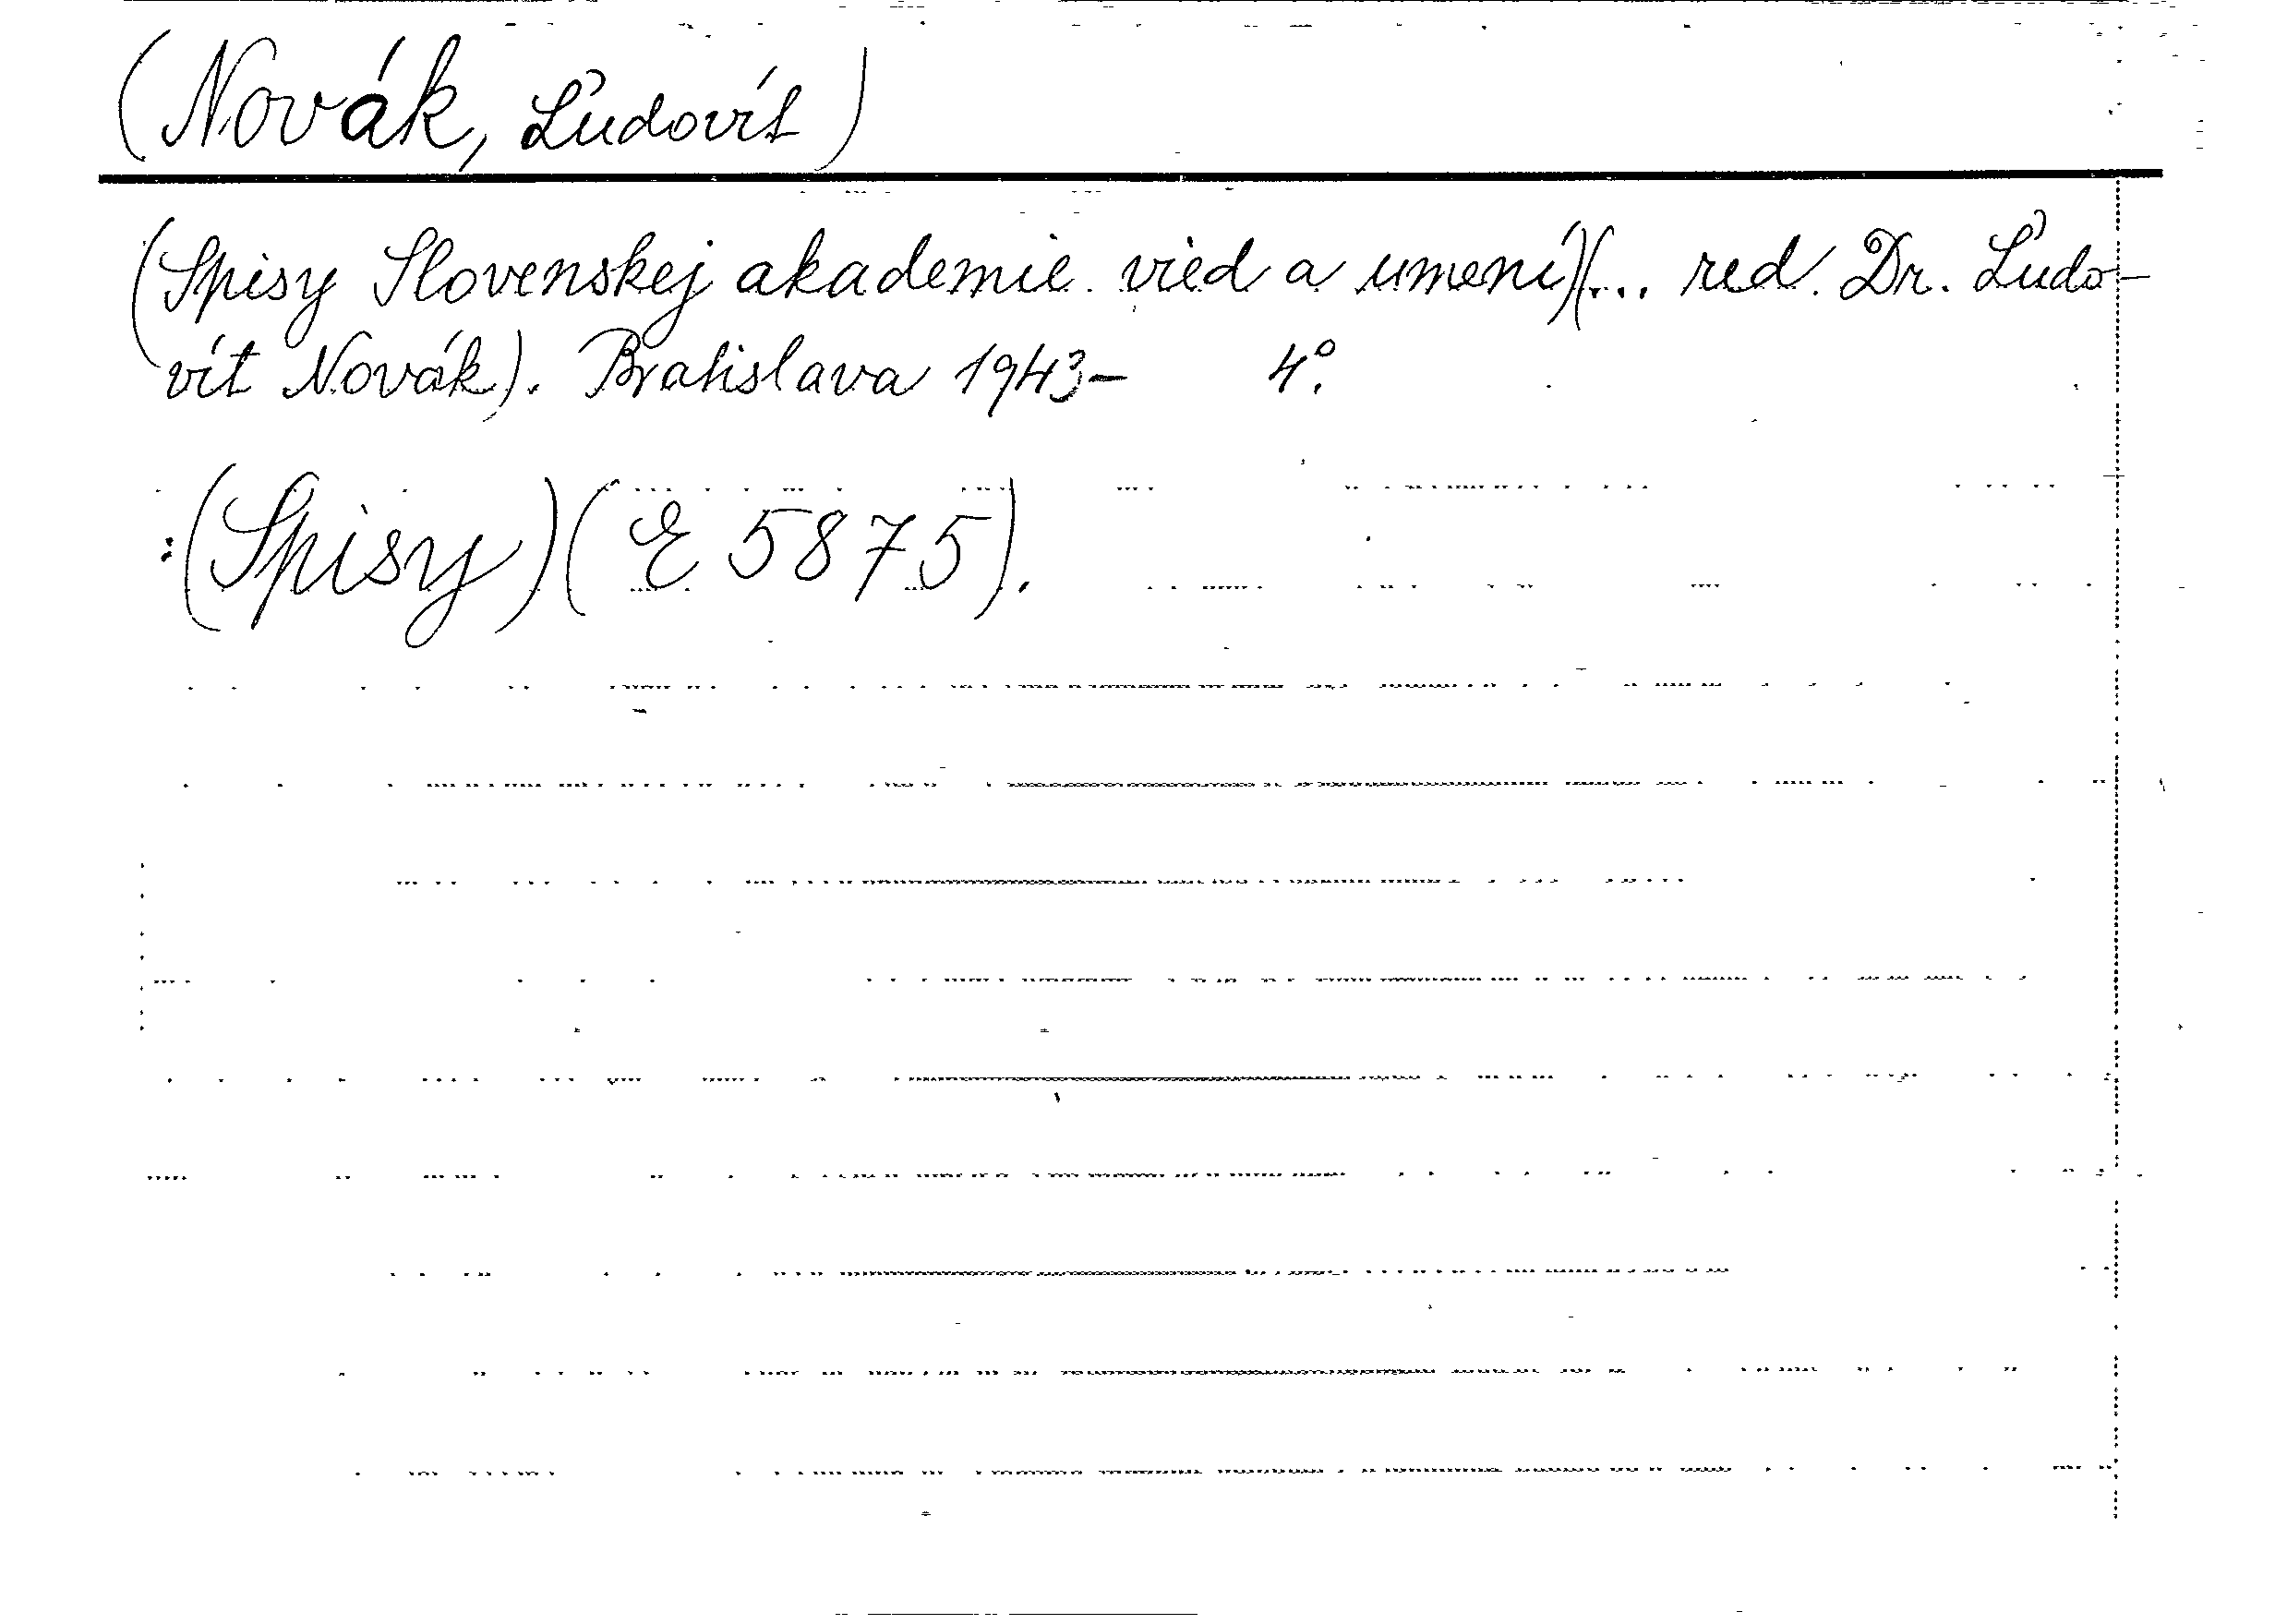 (Novák, Ľudovít)
(Spisy Slovenskej akademie vied a umení)(... red. Dr. Ľudo-
vít Novák). Bratislava 1943- 4°.
:(Spisy)(E 5875).